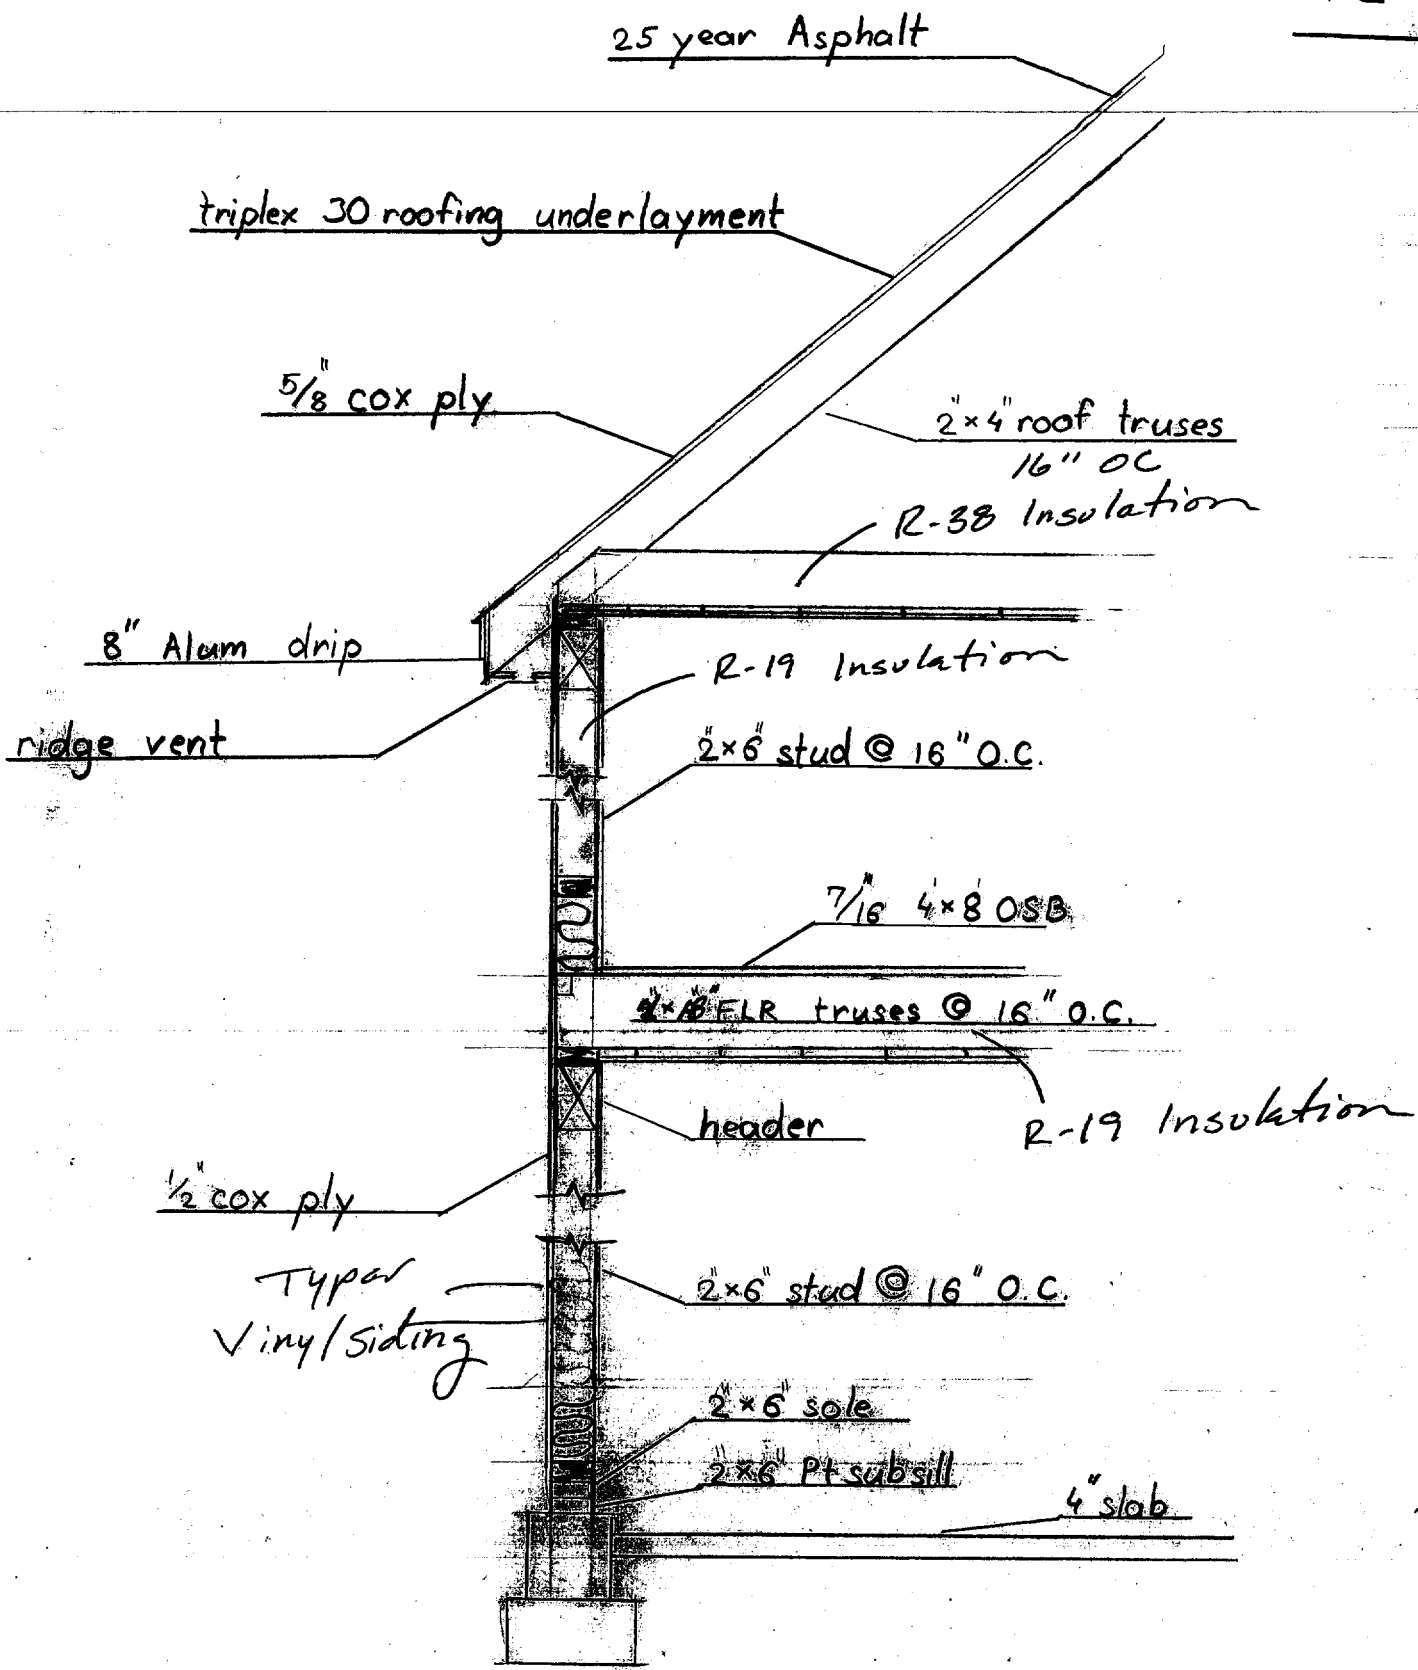 25 year Asphalt
triplex 30 roofing underlayment
5/8" cox ply
2"×4" roof truses
16" OC
R-38 Insulation
8" Alum drip
R-19 Insulation
ridge vent
2"×6" stud @ 16" O.C.
7/16" 4'×8' OSB
FLR truses @ 16" O.C.
R-19 Insulation
header
1/2" cox ply
Typar
Vinyl Siding
2"×6" stud @ 16" O.C.
2"×6" sole
2"×6" Pt subsill
4" slab